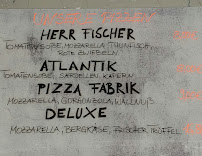 HERR FISCHER
TOMATENSOßE, MOZZARELLA, THUNFISCH,
ROTE ZWIEBELN
ATLANTIK
TOMATENSOßE, SARDELLEN, KAPERN
PIZZA FABRIK
MOZZARELLA, GORGONZOLA, WALNUß
DELUXE
MOZZARELLA, BERGKÄSE, FRISCHER TRÜFFEL